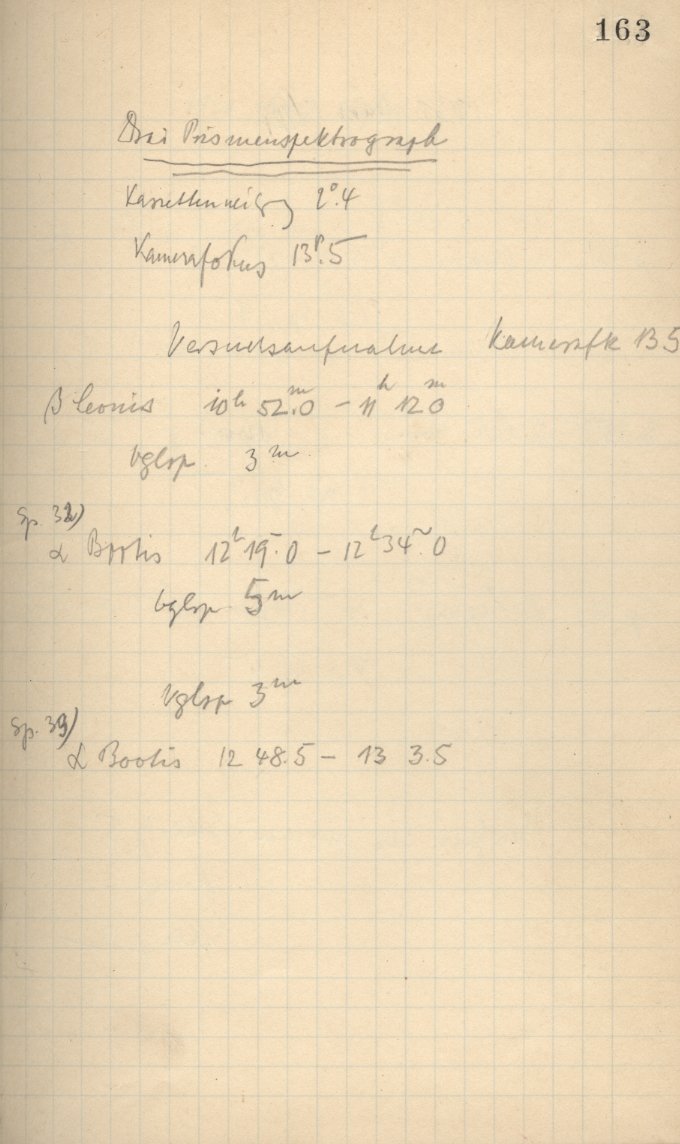 163
Drei Prismenspektrograph
Kassettenneigg 2°.4
Kamerafokus 13p.5
Versuchsaufnahme Kamerafk 13.5
β Leonis 10h 52m.0 – 11h 12m.0
Vglsp. 3m
Sp. 32)
α Bootis 12h 19m.0 – 12h 34m.0
Vglsp. 5m
Vglsp 3m
Sp. 33)
α Bootis 12 48.5 – 13 3.5